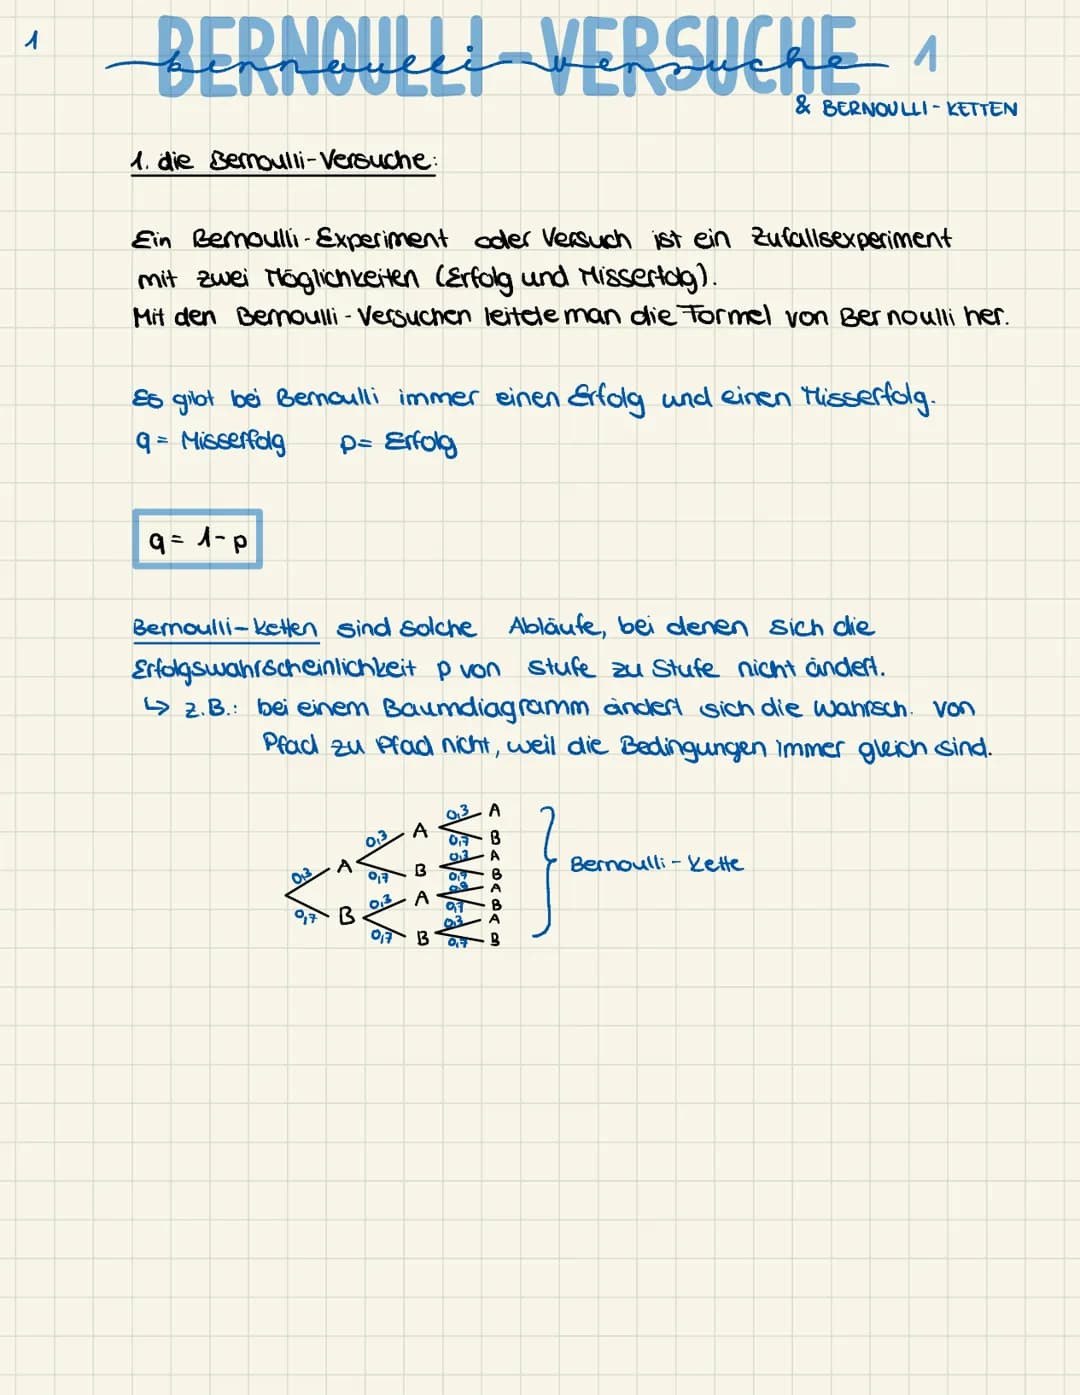 1
BERNOULLI-VERSUCHE 1
bernoulli-versuche
& BERNOULLI-KETTEN
1. die Bernoulli-Versuche:
Ein Bernoulli-Experiment oder Versuch ist ein Zufallsexperiment
mit zwei Möglichkeiten (Erfolg und Misserfolg).
Mit den Bernoulli-Versuchen leitete man die Formel von Bernoulli her.
Es gibt bei Bernoulli immer einen Erfolg und einen Misserfolg.
q = Misserfolg p= Erfolg
q = 1-p
Bernoulli-Ketten sind solche Abläufe, bei denen sich die
Erfolgswahrscheinlichkeit p von Stufe zu Stufe nicht ändert.
↳ z.B.: bei einem Baumdiagramm ändert sich die Wahrsch. von
Pfad zu Pfad nicht, weil die Bedingungen immer gleich sind.
0,3 A
0,3 A
0,7 B
0,3 A
0,3 A
0,7 B
0,7 B
0,3 A
0,3 A
0,7 B
0,7 B
0,3 A
0,7 B
0,7 B
Bernoulli-Kette